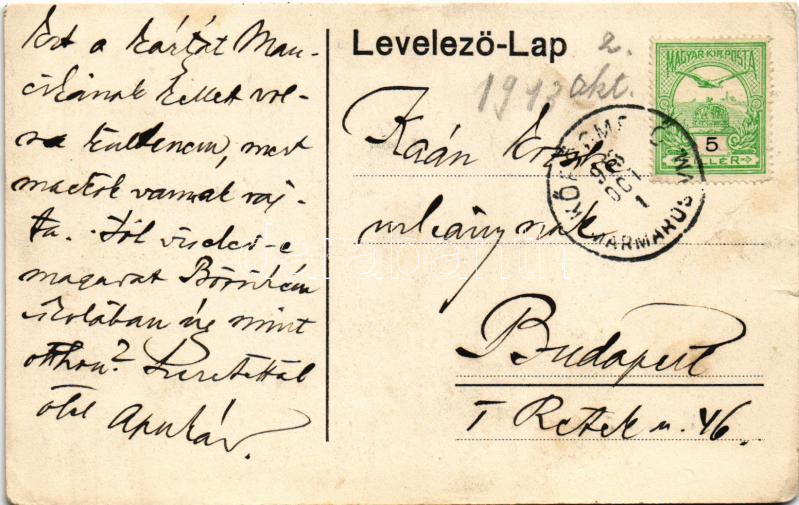 Ezt a kártyát Man-
cikának kellett vol-
na küldenem, mert
macskák vannak raj-
ta. Jól viseled-e
magadat Böriském
iskolában úgy mint
otthon? Szeretettel
ölel Apukád.
Levelező-Lap
2.
1913 okt.
MAGYAR KIR. POSTA
5
FILLÉR
913 OCT 1
MÁRMAROS
Kaán
urleánynak
Budapest
I Retek u. 46.